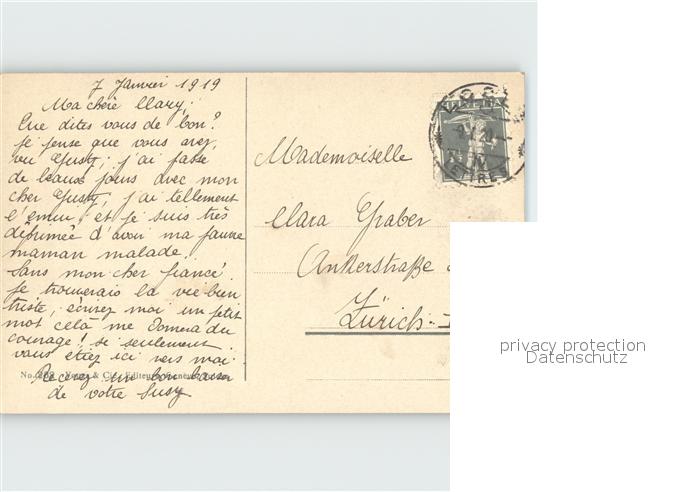 7 Janvier 1919
Ma chère Clary,
Que dites vous de bon?
Je pense que vous avez,
vu Gusty; j'ai passé
de beaux jours avec mon
cher Gusty, j'ai tellement
l'ennui et je suis très
déprimée d'avoir ma pauvre
maman malade.
Sans mon cher fiancé.
Je trouverais la vie bien
triste, écrivez moi un petit
mot celà me donnera du
courage! si seulement
vous étiez ici vers moi.
Recevez un bon baiser
de votre Susy
No. & Cie, Editeurs, Genève
Mademoiselle
Clara Graber
Ankerstraße
Zürich
LETTRES
privacy protection
Datenschutz